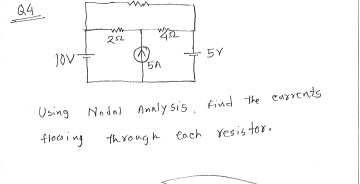 Q4
2Ω 4Ω
10V 5A 5V
Using Nodal Analysis, find the currents
flowing through each resistor.